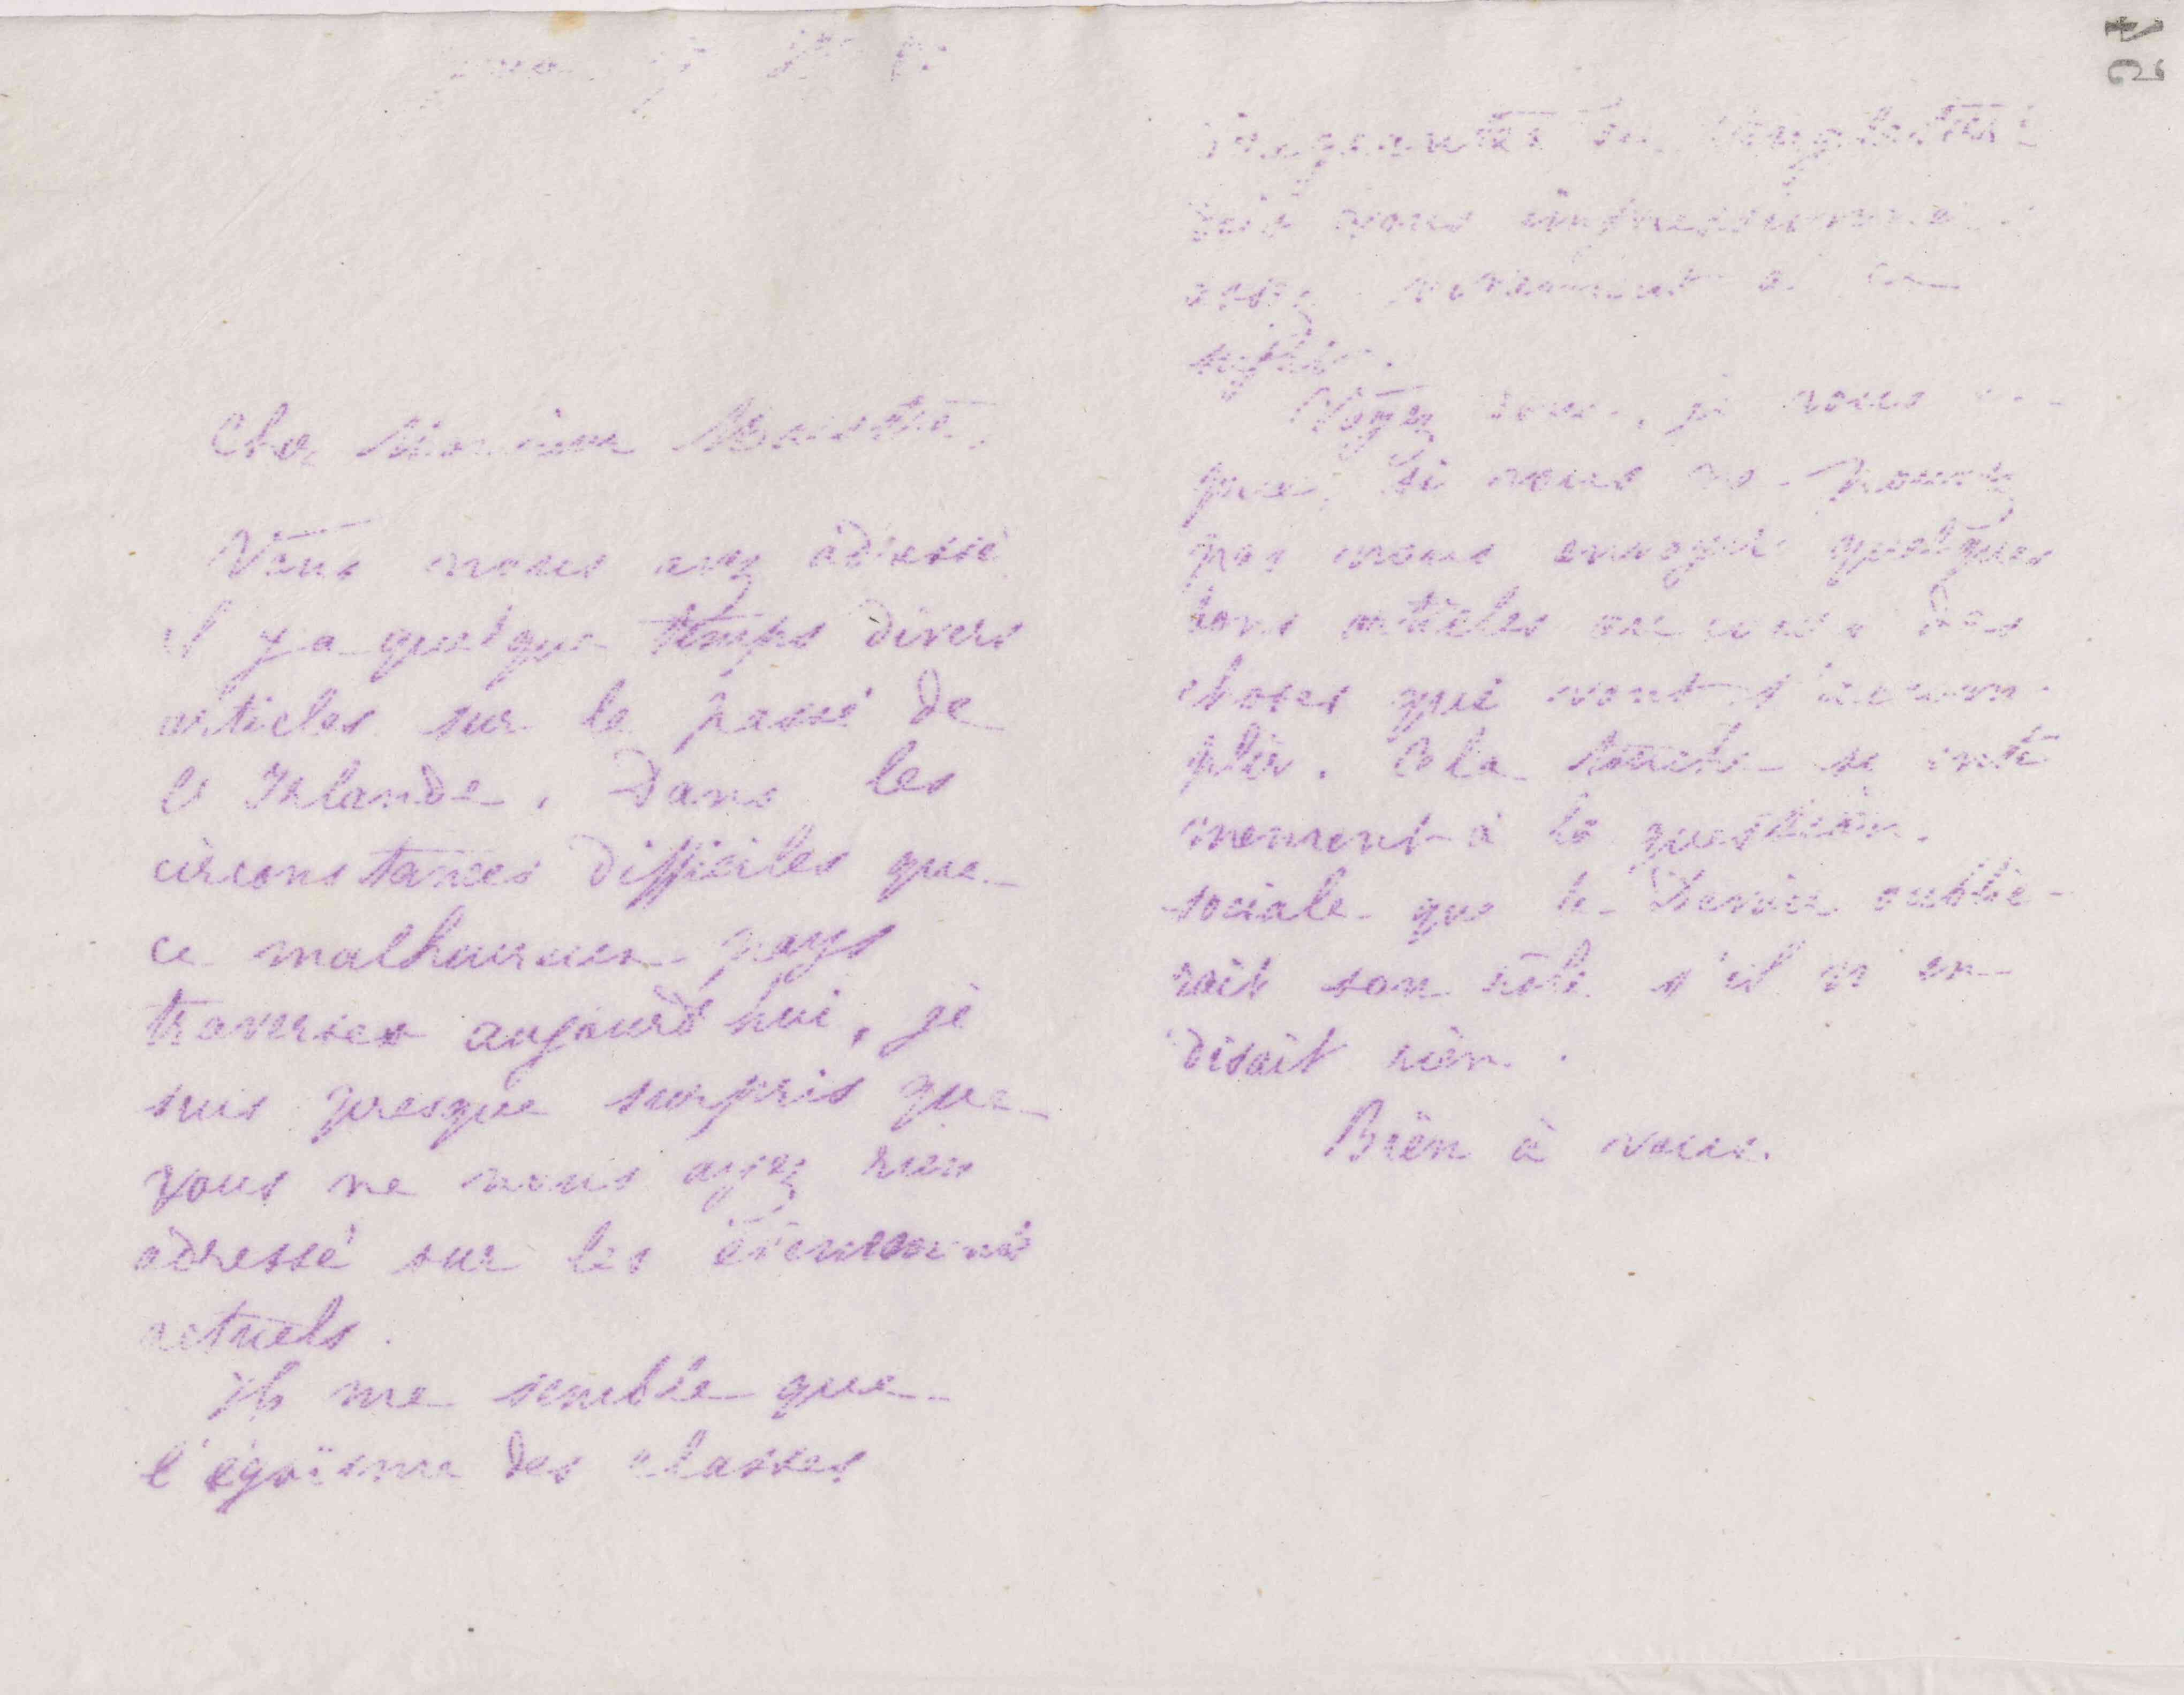 Cher Monsieur
Vous nous avez adressé
il y a quelque temps divers
articles sur le passé de
l'Irlande. Dans les
circonstances difficiles que
ce malheureux pays
traverse aujourd'hui, je
suis presque surpris que
vous ne nous ayez rien
adressé sur les évènements
actuels.
Il me semble que
l'égoïsme des classes
dirigeantes en Angleterre
doit vous impressionner
assez vivement à ce
sujet.
Voyez donc, je vous
prie, si vous ne pouvez
pas nous envoyer quelques
bons articles en vue des
choses qui vont s'accom-
plir. Cela touche si inti
mement à la question
sociale que le Devoir oublie-
rait son rôle s'il n'en
disait rien.
Bien à vous.
54